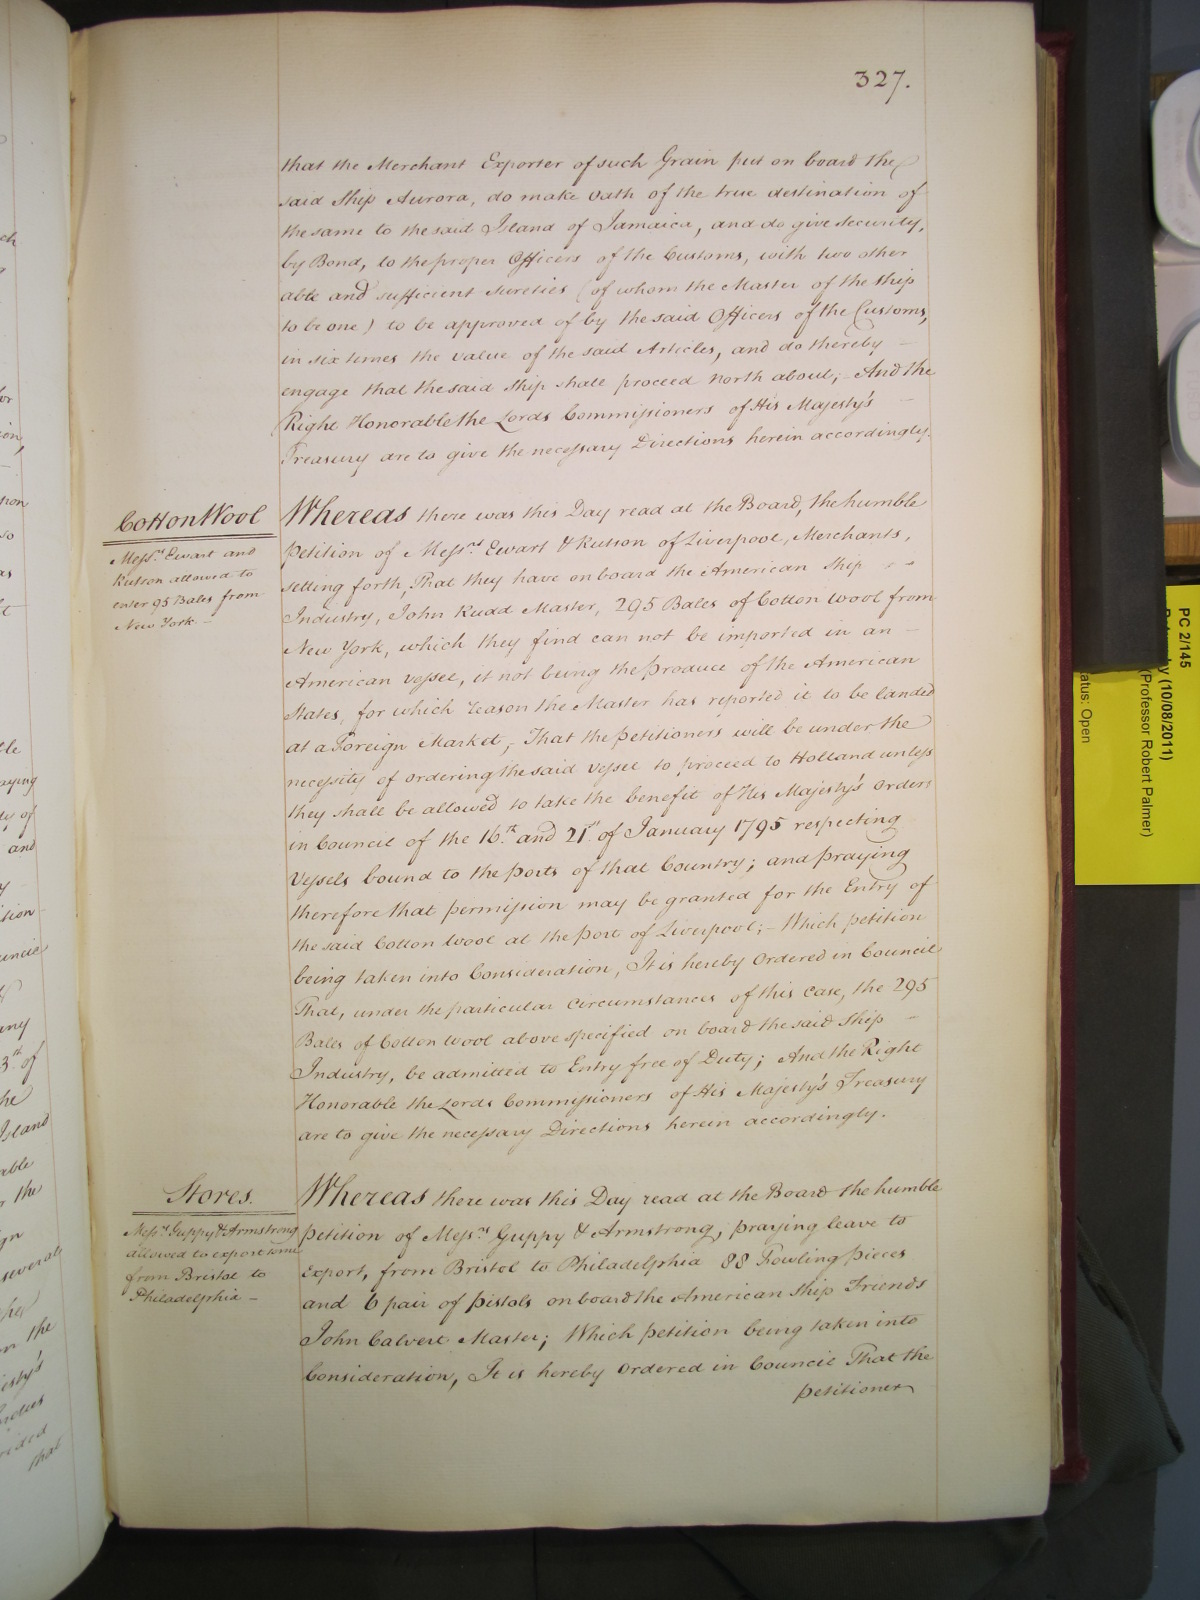 327.
that the Merchant Exporter of such Grain put on board the
said Ship Aurora, do make Oath of the true destination of
the same to the said Island of Jamaica, and do give Security,
by Bond, to the proper Officers of the Customs, with two other
able and sufficient Sureties (of whom the Master of the Ship
to be one) to be approved of by the said Officers of the Customs,
in six times the value of the said Articles, and do thereby –
engage that the said Ship shall proceed North about; – And the
Right Honorable the Lords Commissioners of His Majesty's –
Treasury are to give the necessary Directions herein accordingly.
Cotton Wool
Messrs. Ewart and
Rutson allowed to
enter 95 Bales from
New York. –
Whereas there was this Day read at the Board, the humble
Petition of Messrs. Ewart & Rutson of Liverpool, Merchants,
setting forth, That they have on board the American Ship
Industry, John Rudd Master, 295 Bales of Cotton Wool from
New York, which they find can not be imported in an –
American Vessel, it not being the Produce of the American
States, for which reason the Master has reported it to be landed
at a Foreign Market, That the Petitioners will be under the
necessity of ordering the said Vessel to proceed to Holland unless
they shall be allowed to take the benefit of His Majesty's Orders
in Council of the 16th. and 21st. of January 1795 respecting
Vessels bound to the Ports of that Country; and praying
therefore that permission may be granted for the Entry of
the said Cotton Wool at the Port of Liverpool; – Which Petition
being taken into Consideration, It is hereby Ordered in Council
That, under the particular Circumstances of this Case, the 295
Bales of Cotton Wool above specified on board the said Ship –
Industry, be admitted to Entry free of Duty; And the Right
Honorable the Lords Commissioners of His Majesty's Treasury
are to give the necessary Directions herein accordingly.
Stores.
Messrs Guppy & Armstrong
allowed to export some
from Bristol to
Philadelphia –
Whereas there was this Day read at the Board the humble
Petition of Messrs. Guppy & Armstrong, praying leave to
Export, from Bristol to Philadelphia 88 Fowling Pieces
and 6 pair of Pistols on board the American Ship Friends
John Calvert Master; Which Petition being taken into
Consideration, It is hereby Ordered in Council That the
Petitioner
PC 2/145
(10/08/2011)
(Professor Robert Palmer)
atus: Open